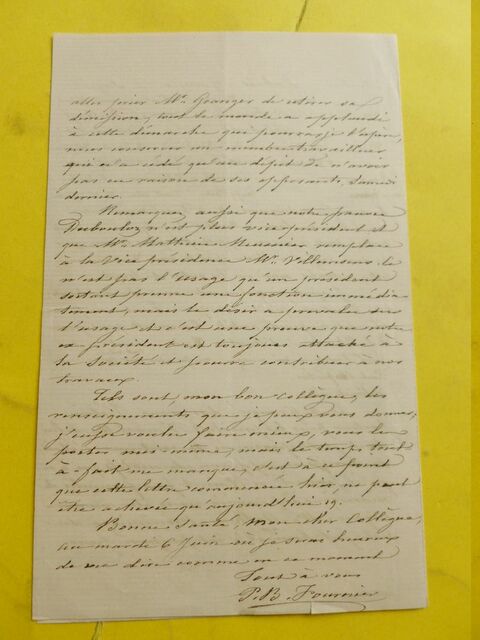 aller prier Mr. Granger de retirer sa
démission, tout le monde a applaudi
à cette démarche qui pourra, je l'espère,
nous conserver un membre travailleur
qui n'a cédé qu'au dépit de n'avoir
pas eu raison de ses opposants, Samedi
dernier.
Remarquez aussi que notre pauvre
n'est plus vice président et
que Mr. Mathieu Meusnier remplace
à la Vice présidence Mr. Villemereux. Ce
n'est pas l'usage qu'un président
sortant prenne une fonction immédia-
tement, mais le désir a prévalu sur
l'usage et c'est une preuve que notre
ex président est toujours attaché à
la Société et pourra contribuer à nos
travaux.
Tels sont, mon bon Collègue, les
renseignements que je puis vous donner,
j'eusse voulu faire mieux, vous les
porter moi-même, mais le temps tout-
à-fait me manque, c'est à ce point
que cette lettre commencée hier, ne peut
être achevée qu'aujourd'hui 19.
Bonne Santé, Mon cher Collègue,
au mardi 6 Juin où je serai heureux
de vous dire comme en ce moment
Tout à vous
P. B. Fournier